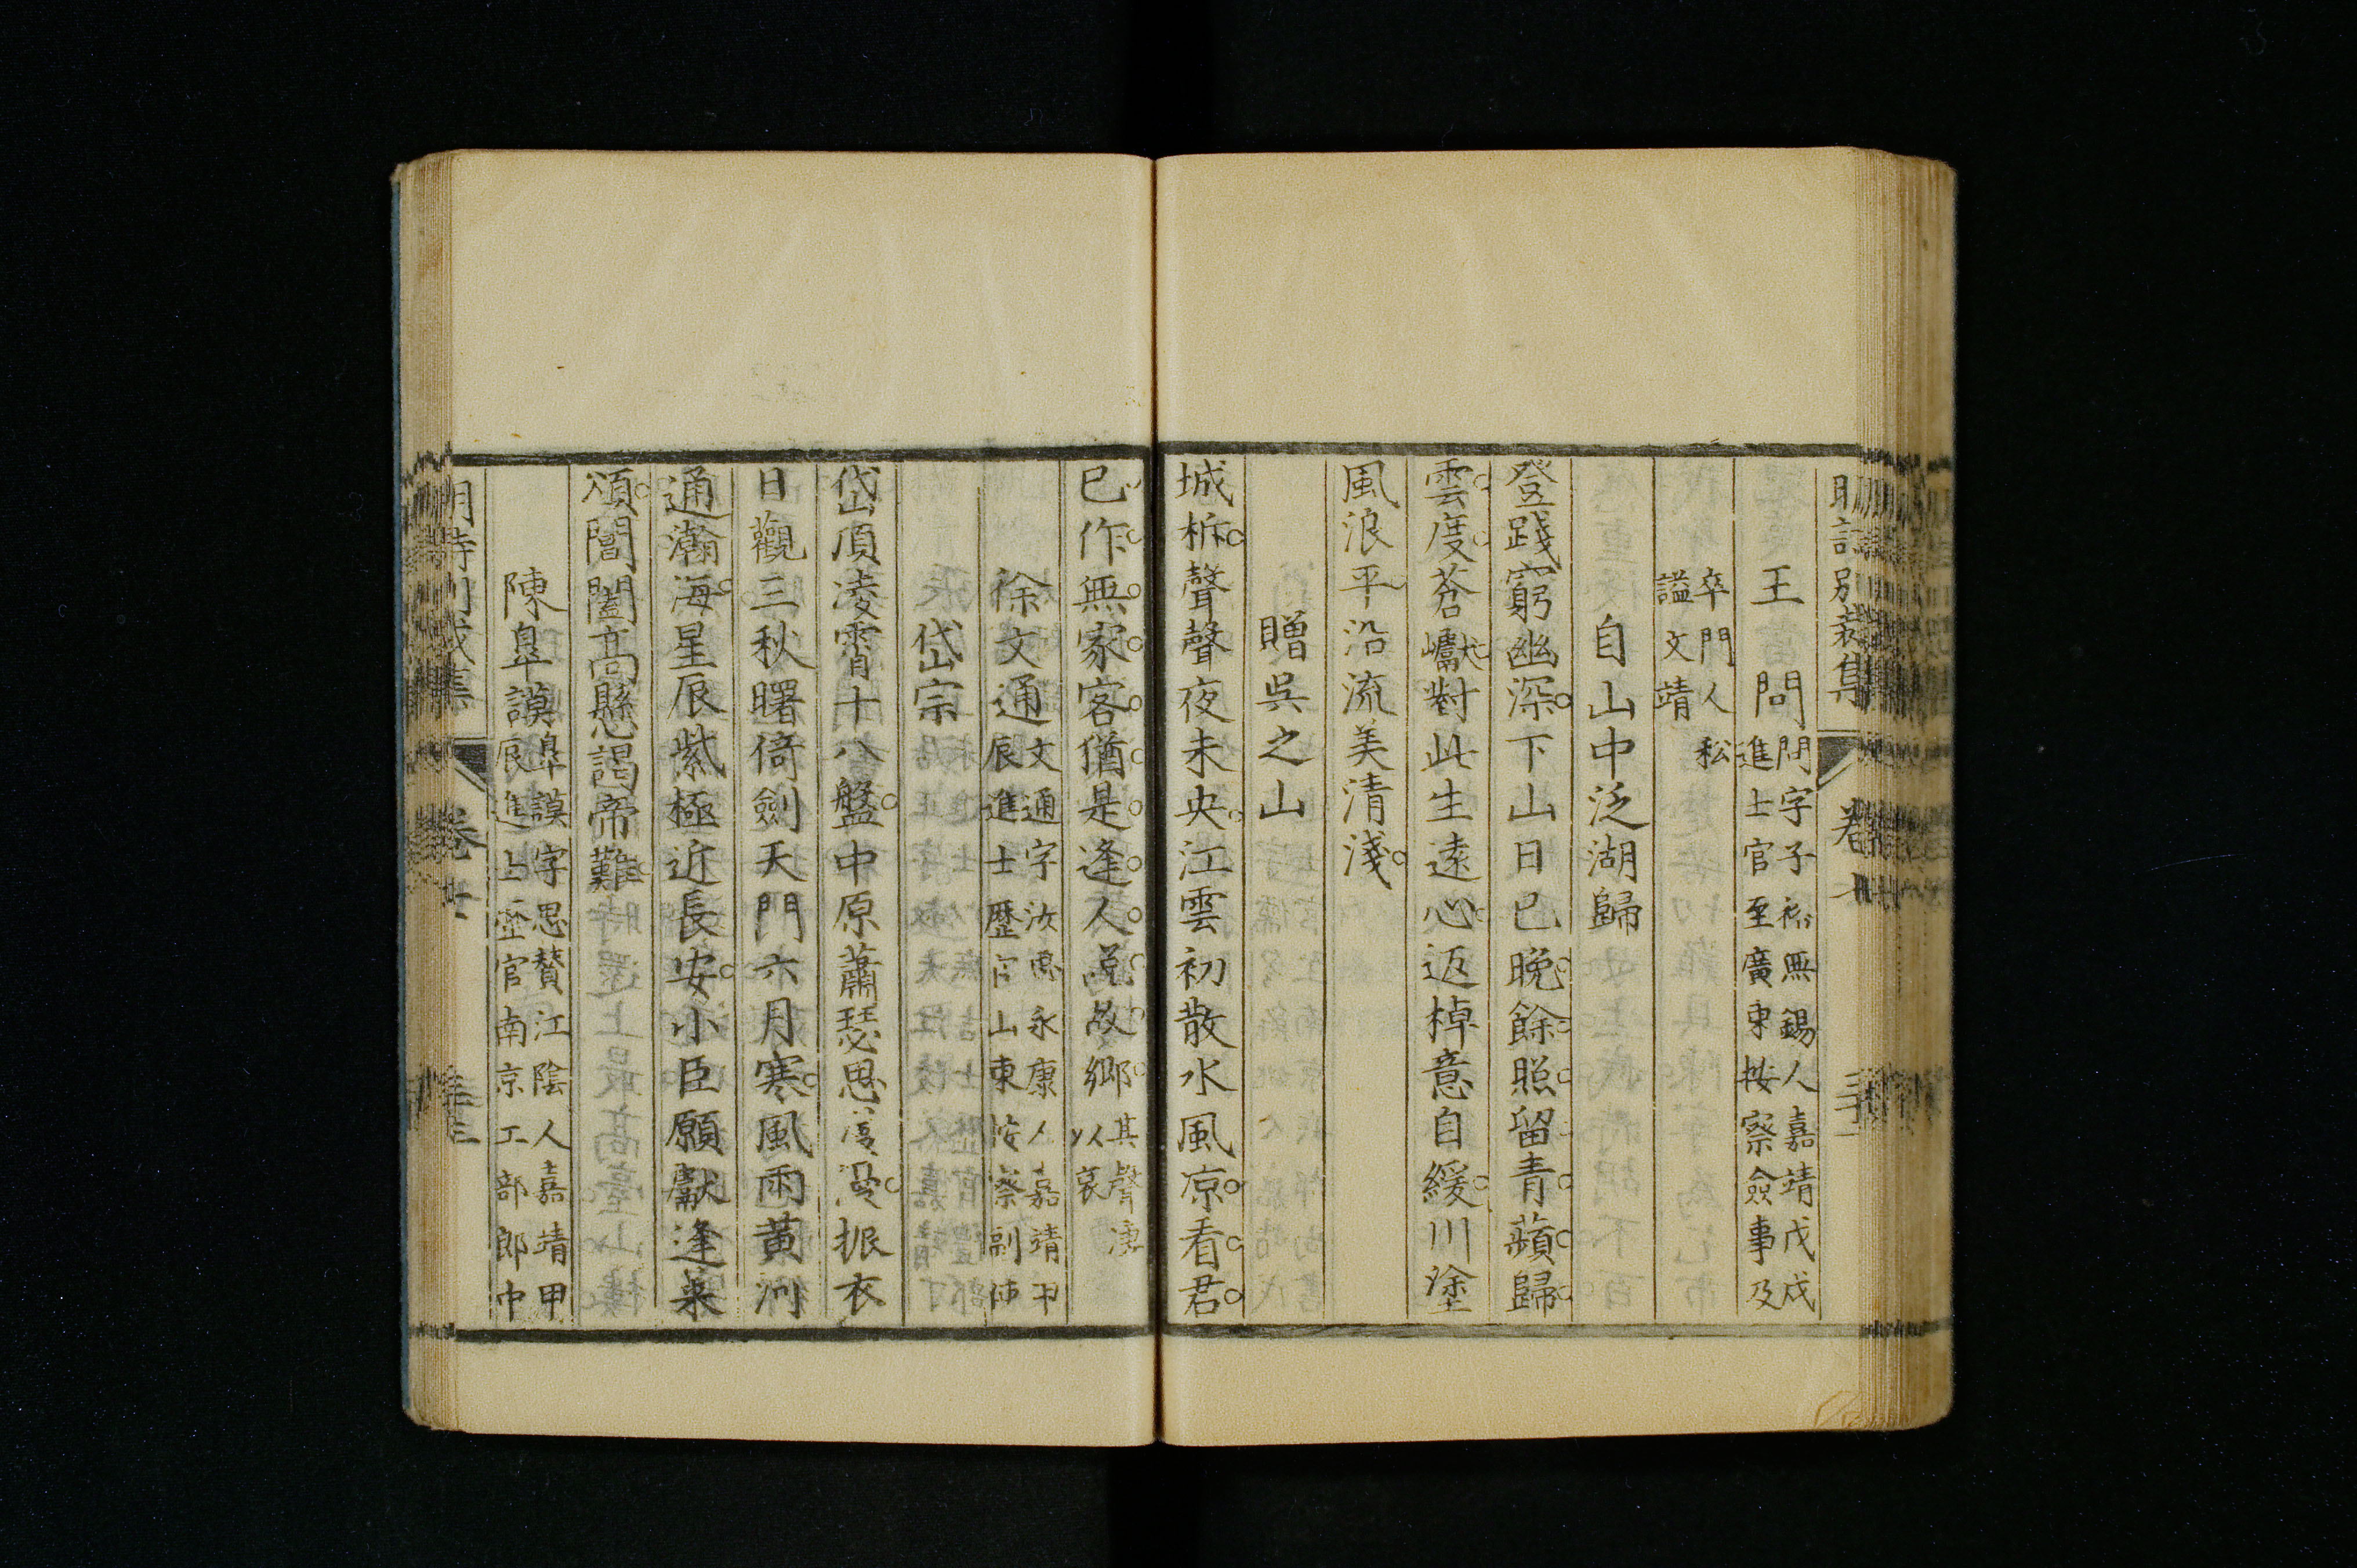 王問 問字子裕無錫人嘉靖戊戌進士官至廣東按察僉事及
卒門人私謚文靖
自山中泛湖歸
登踐窮幽深下山日已晚餘照留青蘋歸
雲度蒼巘對此生遠心返棹意自緩川塗
風浪平沿流美清淺
贈吳之山
城柝聲聲夜未央江雲初散水風凉看君
已作無家客猶是逢人説故鄉 其聲凄以哀
徐文通 文通字汝思永康人嘉靖甲辰進士歷官山東按察副使
岱宗
岱頂凌霄十八盤中原蕭瑟思漫漫振衣
日觀三秋曙倚劍天門六月寒風雨黃河
通瀚海星辰紫極近長安小臣願獻蓬萊
頌閶闔高懸謁帝難
陳皐謨 皐謨字思贊江陰人嘉靖甲辰進士歷官南京工部郎中